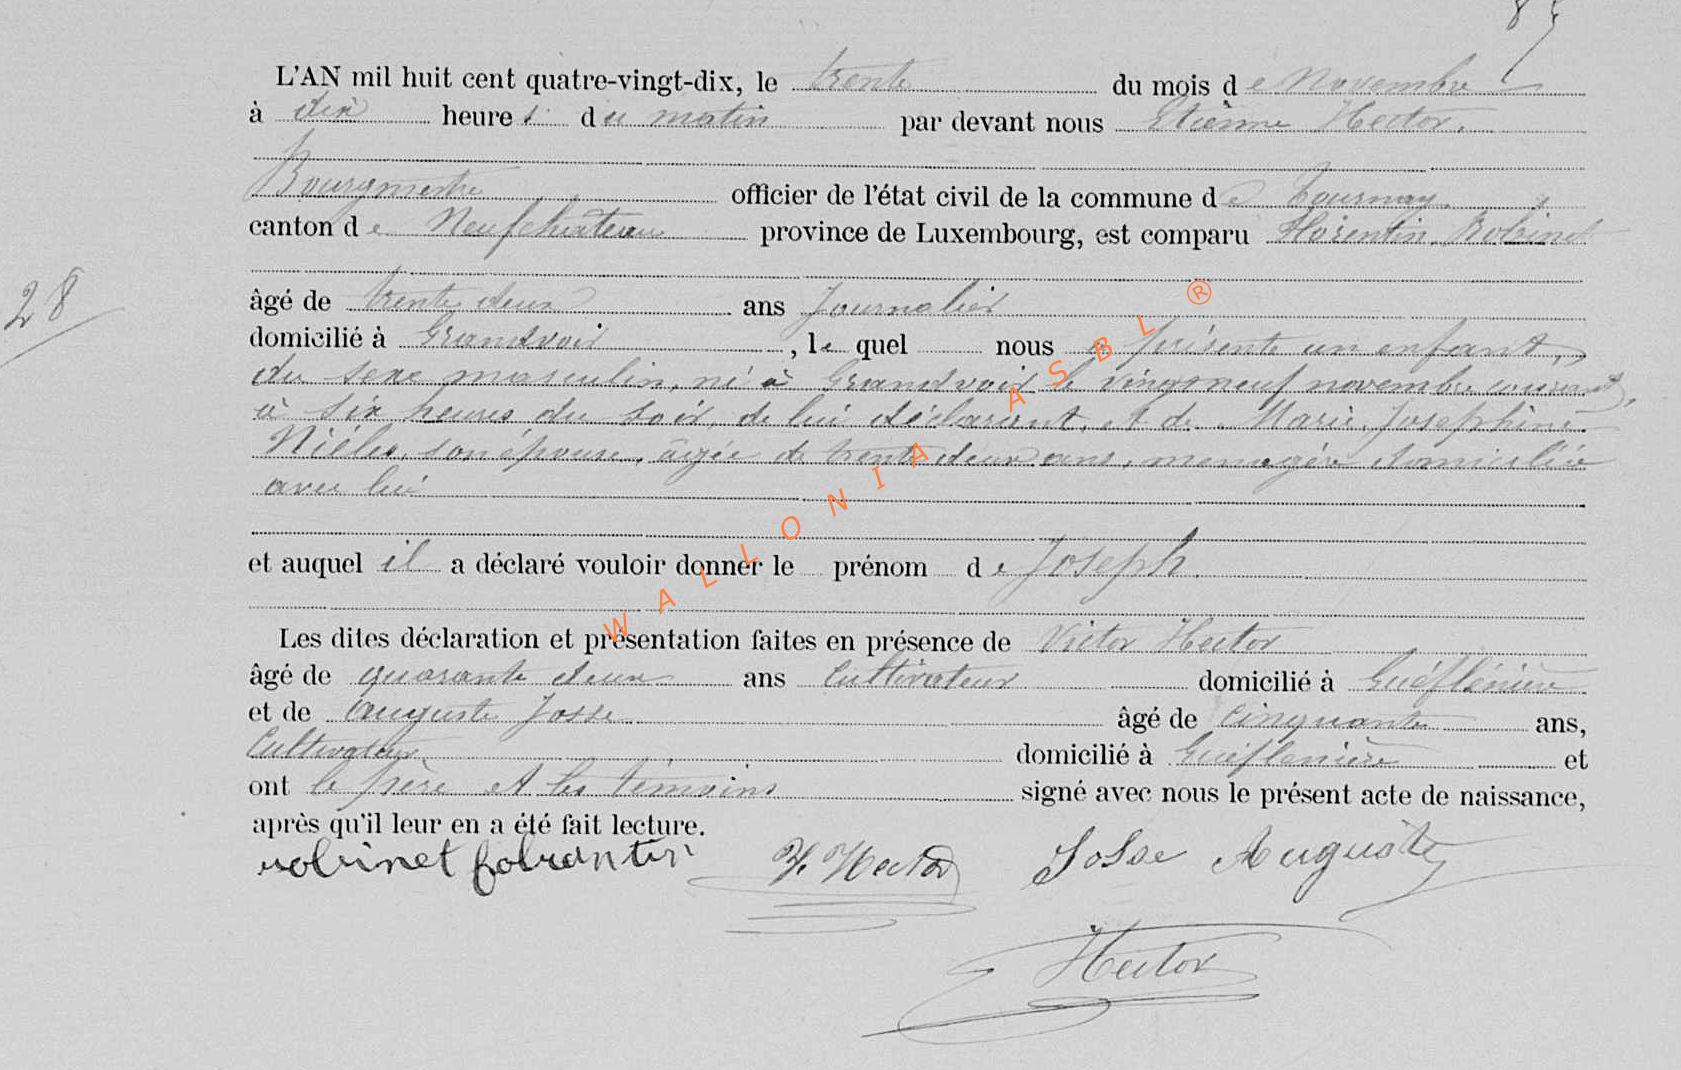 85
L'AN mil huit cent quatre-vingt-dix, le trente du mois de Novembre
à dix heures du matin par devant nous Etienne Hector,
Bourgmestre officier de l'état civil de la commune de Tournay,
canton de Neufchateau province de Luxembourg, est comparu Florentin Robinet
28
âgé de trente deux ans Journalier
domicilié à Grandvoir, le quel nous a présenté un enfant,
du sexe masculin, né à Grandvoir le vingt neuf novembre courant,
à six heures du soir, de lui déclarant, et de Marie Joséphine
son épouse, âgée de trente deux ans, menagère domiciliée
avec lui
et auquel il a déclaré vouloir donner le prénom de Joseph.
Les dites déclaration et présentation faites en présence de Victor Hector
âgé de quarante deux ans Cultivateur domicilié à
et de Auguste Josse âgé de Cinquante ans,
Cultivateur domicilié à et
ont le père et les témoins signé avec nous le présent acte de naissance,
après qu'il leur en a été fait lecture.
robinet V. Hector Josse Auguste
Hector
WALLONIA ASBL ®